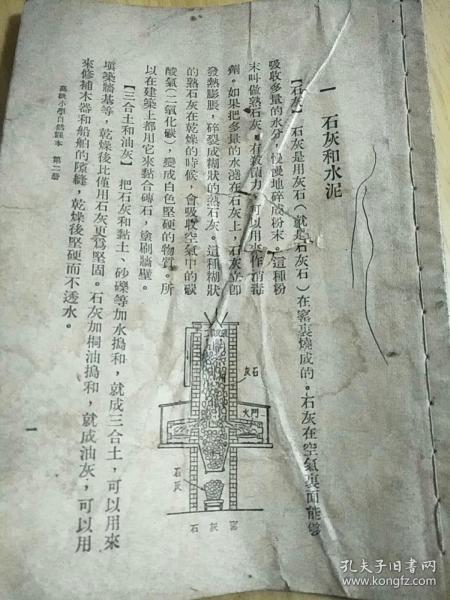 一 石灰和水泥
【石灰】 石灰是用灰石(就是石灰石)在窰裏燒成的。石灰在空氣裏面能够
吸收多量的水分,慢慢地碎成粉末。這種粉
末叫做熟石灰,有殺菌力,可以用來作消毒
劑。如果把多量的水澆在石灰上,石灰立卽
發熱膨脹,碎裂成糊狀的熟石灰。這種糊狀
的熟石灰在乾燥的時候,會吸收空氣中的碳
酸氣(二氧化碳),變成白色堅硬的物質。所
以在建築上都用它來黏合磚石,塗刷牆壁。
【三合土和油灰】 把石灰和黏土、砂礫等加水搗和,就成三合土,可以用來
填築牆基等,乾燥後比僅用石灰更爲堅固。石灰加桐油搗和,就成油灰,可以用
來修補木器和船舶的隙縫,乾燥後堅硬而不透水。
灰石
火門
石灰
石灰窰
高級小學自然課本 第二册
一
孔夫子旧书网
www.kongfz.com